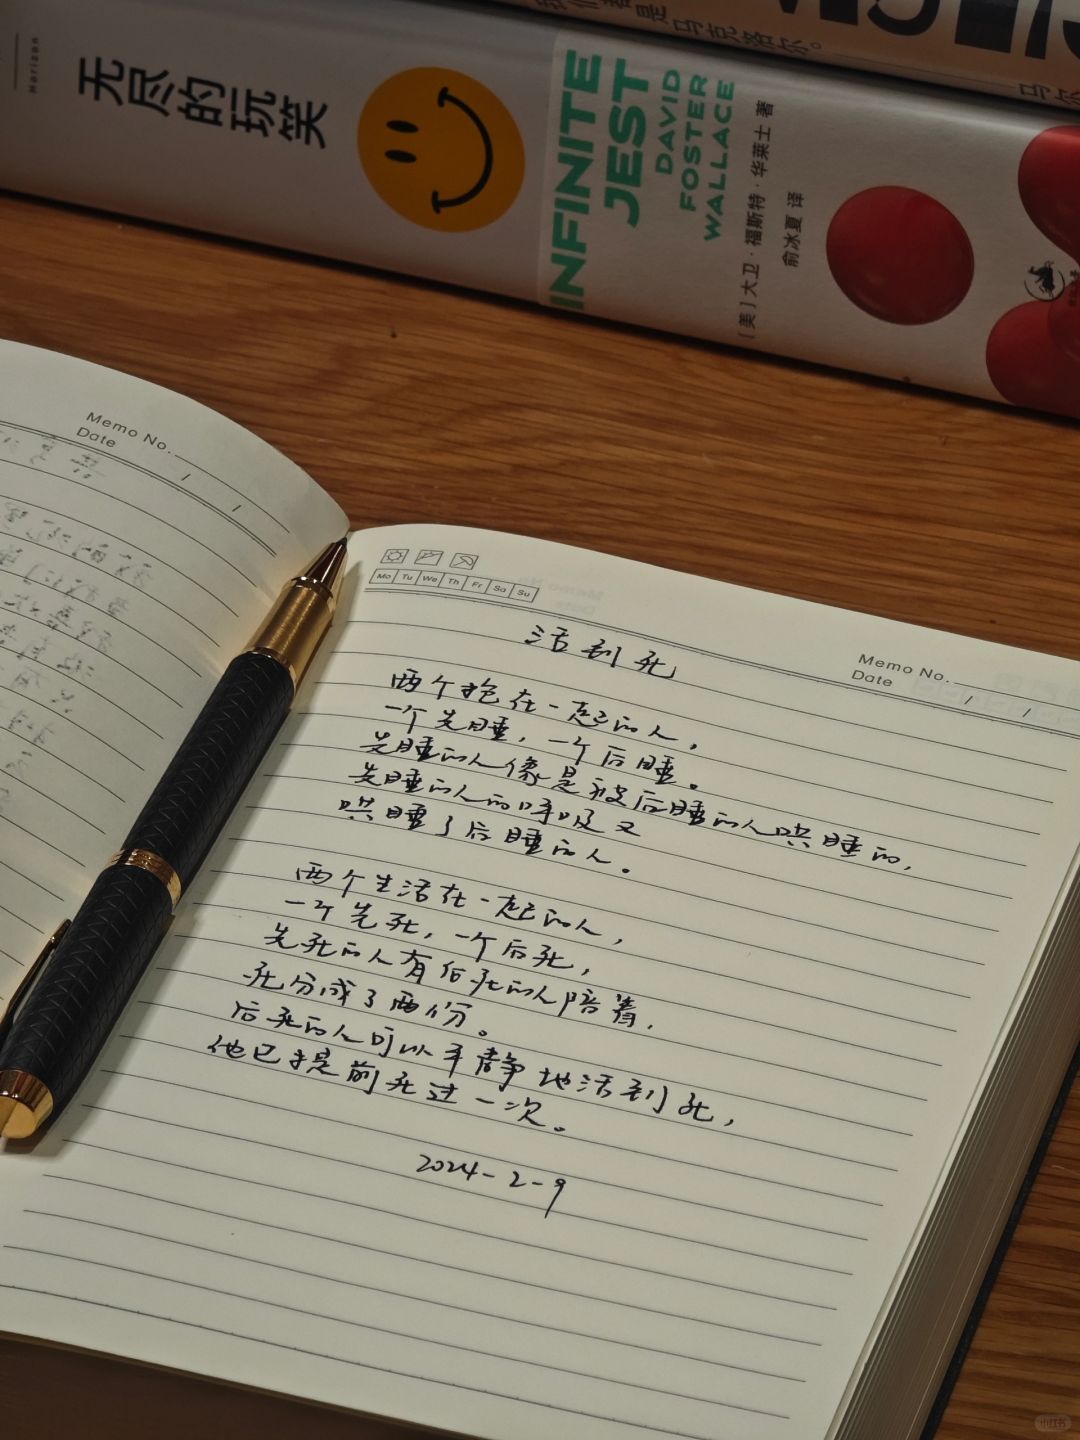 我们都是马克洛尔。
Horizon
无尽的玩笑
INFINITE
JEST
DAVID
FOSTER
WALLACE
[美]大卫·福斯特·华莱士 著
俞冰夏 译
Memo No.
Date / /
Mo Tu We Th Fr Sa Su
Memo No.
Date / /
活到死
两个抱在一起的人，
一个先睡，一个后睡。
先睡的人像是被后睡的人哄睡的，
先睡的人的呼吸又
哄睡了后睡的人。
两个生活在一起的人，
一个先死，一个后死，
先死的人有后死的人陪着，
死分成了两份。
后死的人可以平静地活到死，
他已提前死过一次。
2024-2-9
小红书